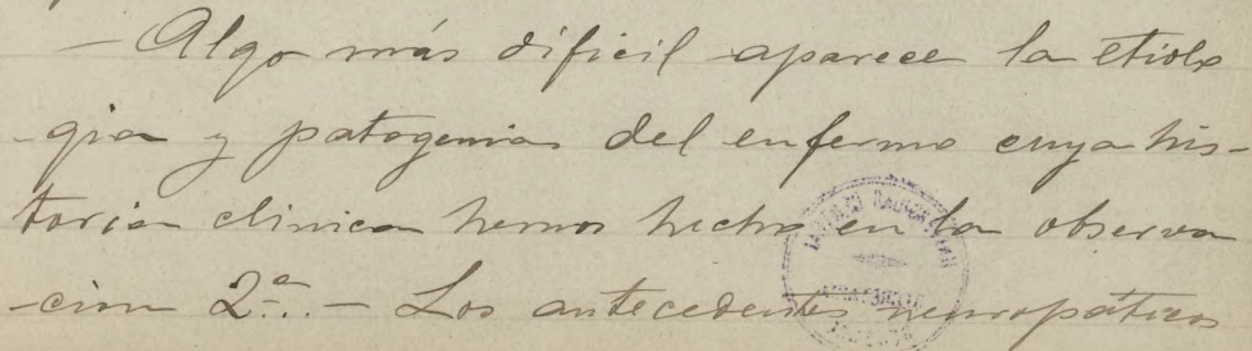 — Algo más dificil aparece la etiolo
-gia y patogenia del enfermo cuya his-
toria clinica hemos hecho en la observa
-cion 2ª. — Los antecedentes neuropáticos